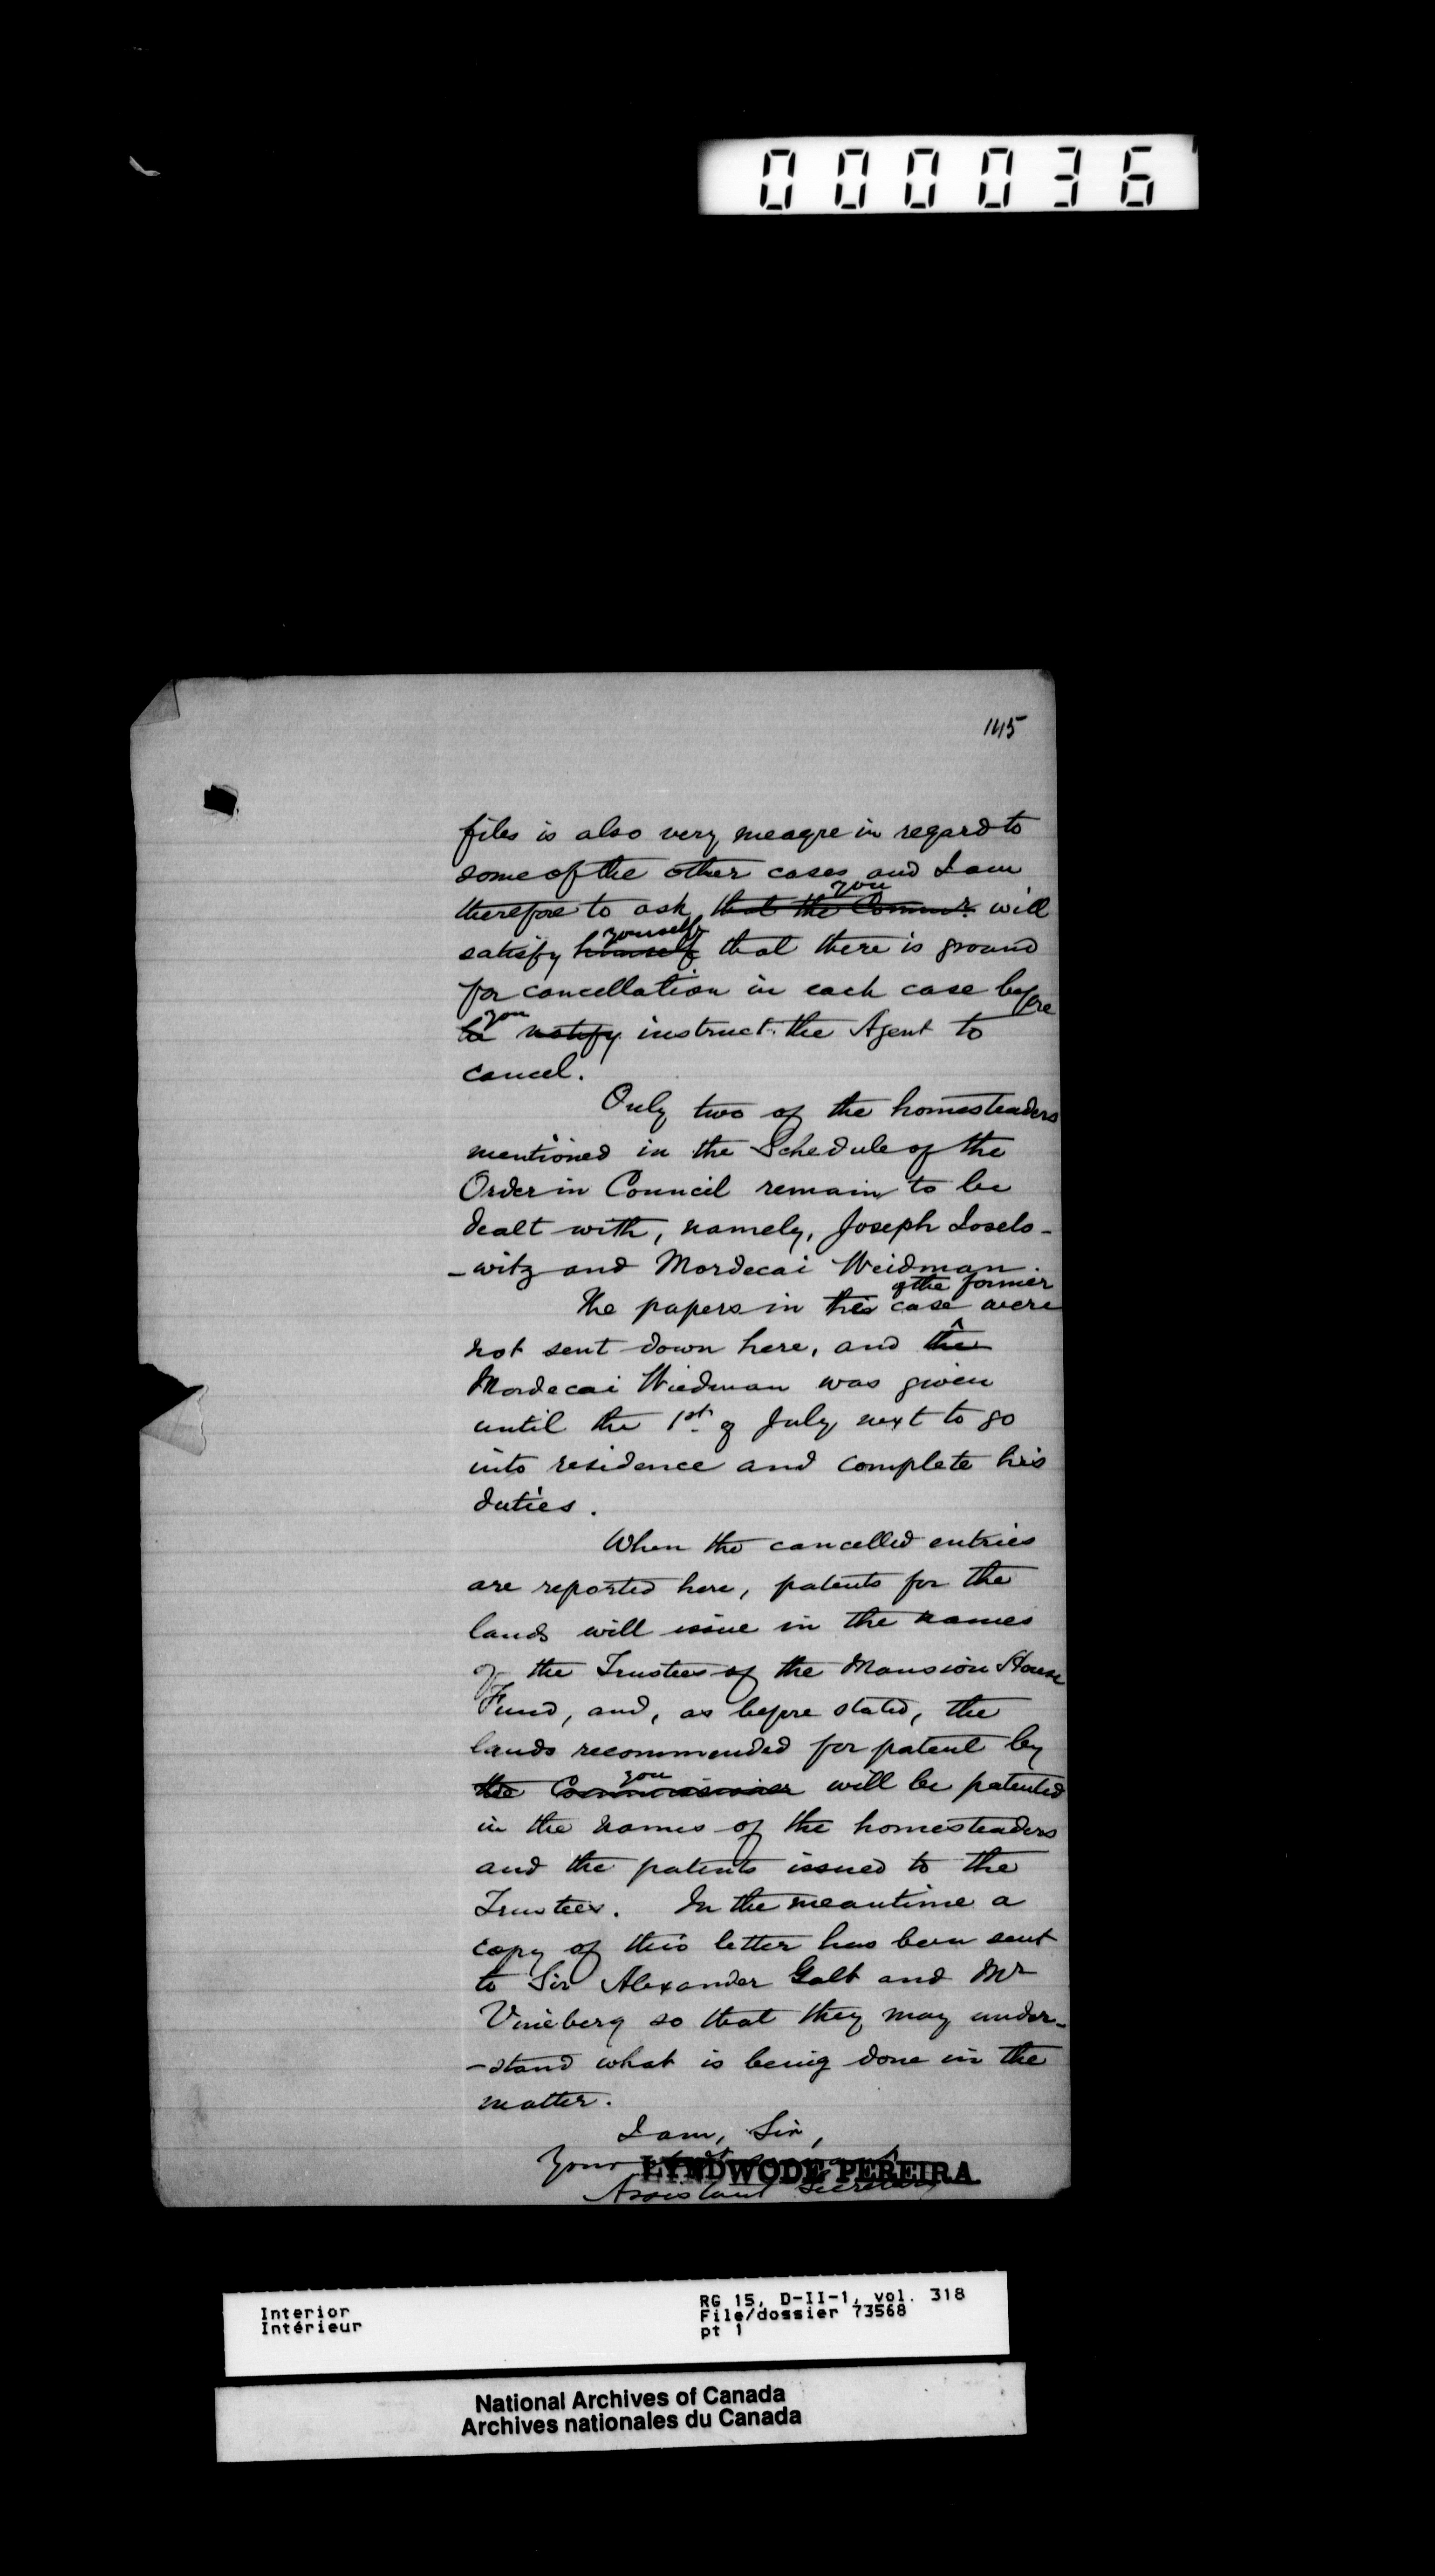 000036
145
files is also very meagre in regard to
some of the other cases and I am
you
therefore to ask that the Commr. will
yourself
satisfy himself that there is ground
for cancellation in each case before
you
he notify instruct the Agent to
cancel.
Only two of the homesteaders
mentioned in the Schedule of the
Order in Council remain to be
dealt with, namely, Joseph Loselo-
-witz and Mordecai Weidman.
of the former
The papers in this case were
not sent down here, and the
Mordecai Wiedman was given
until the 1st of July next to go
into residence and complete his
duties.
When the cancelled entries
are reported here, patents for the
lands will issue in the names
of the Trustees of the Mansion House
Fund, and, as before stated, the
lands recommended for patent by
you
the Commissioner will be patented
in the names of the homesteaders
and the patents issued to the
Trustees. In the meantime a
copy of this letter has been sent
to Sir Alexander Galt and Mr
Vineberg so that they may under-
-stand what is being done in the
matter.
I am, Sir,
Your
LYNDWODE PEREIRA
Assistant Secretary
Interior
Intérieur
RG 15, D-II-1, vol. 318
File/dossier 73568
pt 1
National Archives of Canada
Archives nationales du Canada